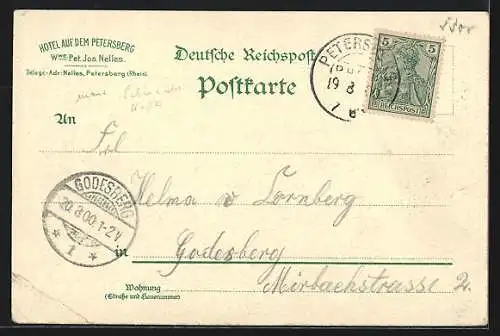 HOTEL AUF DEM PETERSBERG
Wwe. Pet. Jos. Nelles.
Telegr.-Adr: Nelles, Petersberg (Rhein).
Deutsche Reichspost
Postkarte
PETERS
19 8
7
5 5
REICHSPOST
An
Frl
Helma v Lornberg
GODESBERG
20.8.00. 1-2N.
* 1 *
in Godesberg
Mirbachstrasse 2.
Wohnung
(Straße und Hausnummer)